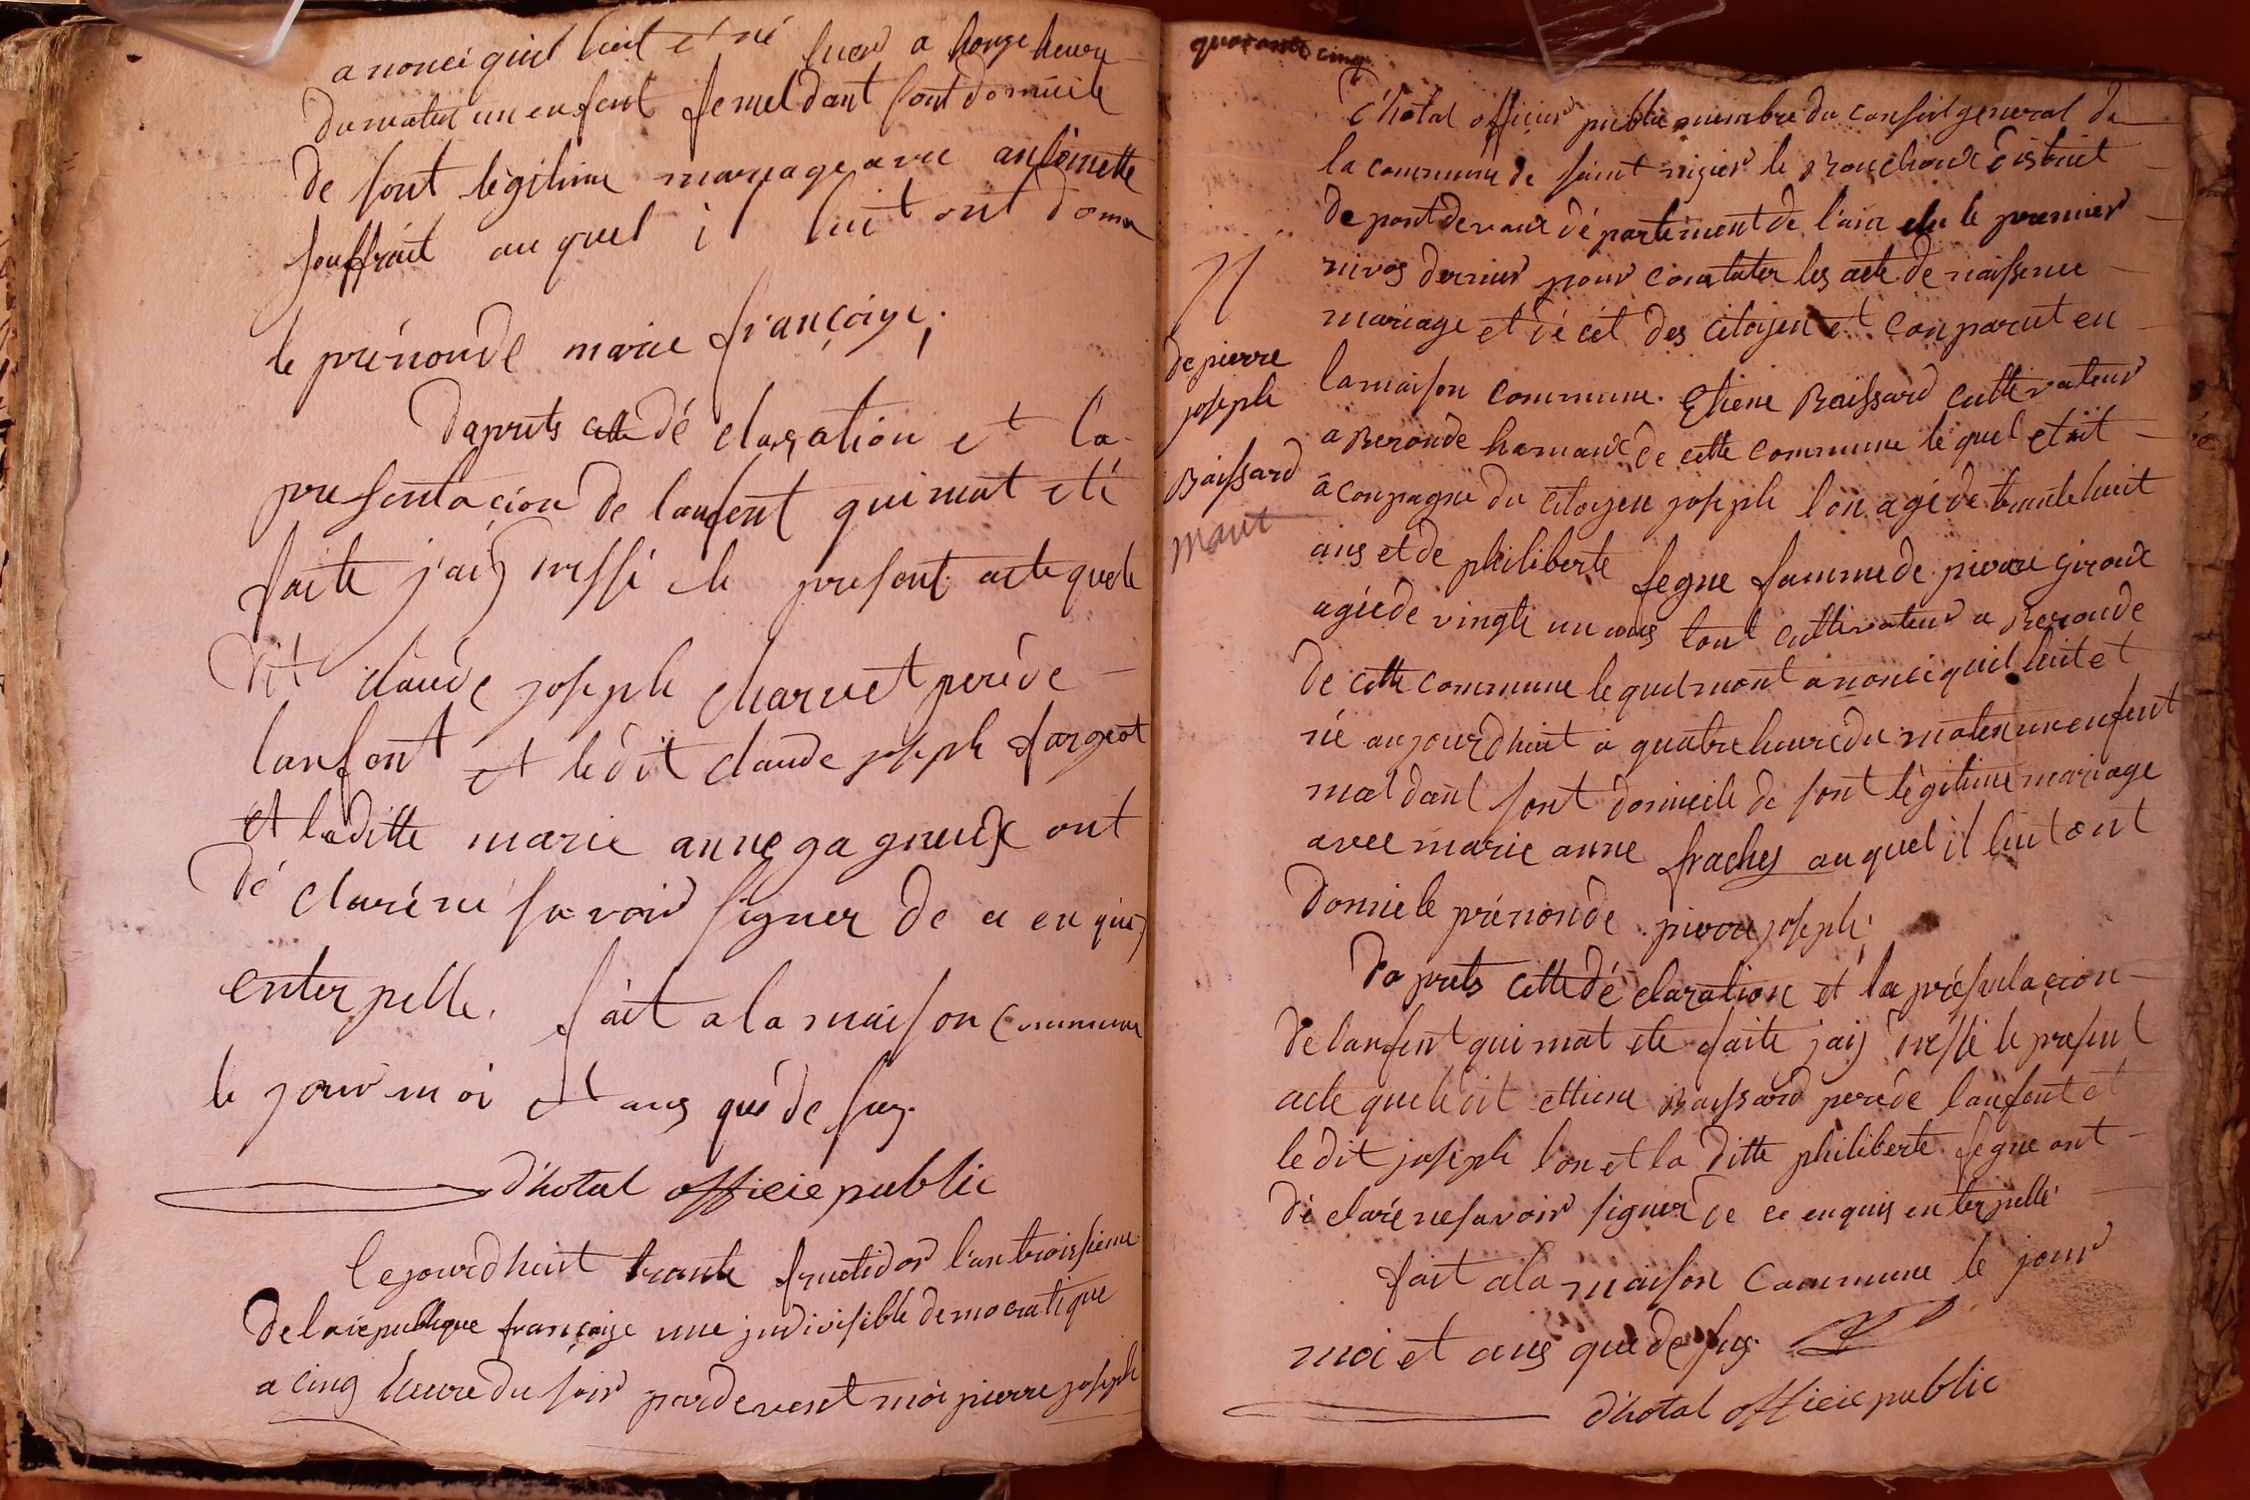 anoncé quil luit et né hier a honze heure
du matin un enfant femel dant sont domicile
de sont légitime mariage avec antoinette
souffrait au quel il luit ont donné
le prénon de marie françoise;
daprets cette dé claration et la
presentacion de lanfent qui mat eté
faite j'aij dressé le present acte que le
dit claude joseph charvet pere de
lanfent et le dit claude joseph fargeot
et la ditte marie anne gagneux ont
dé claré ne savoir signer de ce en quis
enterpelle. fait a la maison commune
le jour moi et ans qui de sus.
d'hotal officie public
Cejourdhuit trante fructidor l'an troissieme
de la republique françoise une indivisible democratique
a cinq heure du soir pardevent moi pierre joseph
quarante cinq
d'hotal officier public membre du conseil general de
la commune de saint nizier le Bouchoux district
de pont devaux département de l'ain elu le premier
nivos dernier pour constater les acte de naissence
mariage et décét des citoyen et conparut en
la maison commune. Etiene Baissard cultivateur
a Beronde hamaux de cette commune le quel etoit
aconpagné du citoyen joseph lon agé de trante huit
ans et de philiberte segne famme de pierre giroux
agée de vingte un ans tout cultivateur a Beronde
de cette commune le quel mont anoncé quil luit et
né aujourdhuit a quatre heure du maten un enfent
mal dant sont domicile de sont légitime mariage
avec marie anne fraches auquel il luit ont
donné le prénon de pierre joseph;
N
de pierre
joseph
Baissard
mort
daprets cette dé claration et la présentacion
de lanfent qui mat ete faite jaij dressé le present
acte que le dit ettiene Baissard pere de lanfent et
le dit joseph lon et la ditte philiberte segne ont
dé claré ne savoir signer de ce enquis enterpellé
fait a la maison commune le jour
moi et ans que de sus
d'hotal officie public